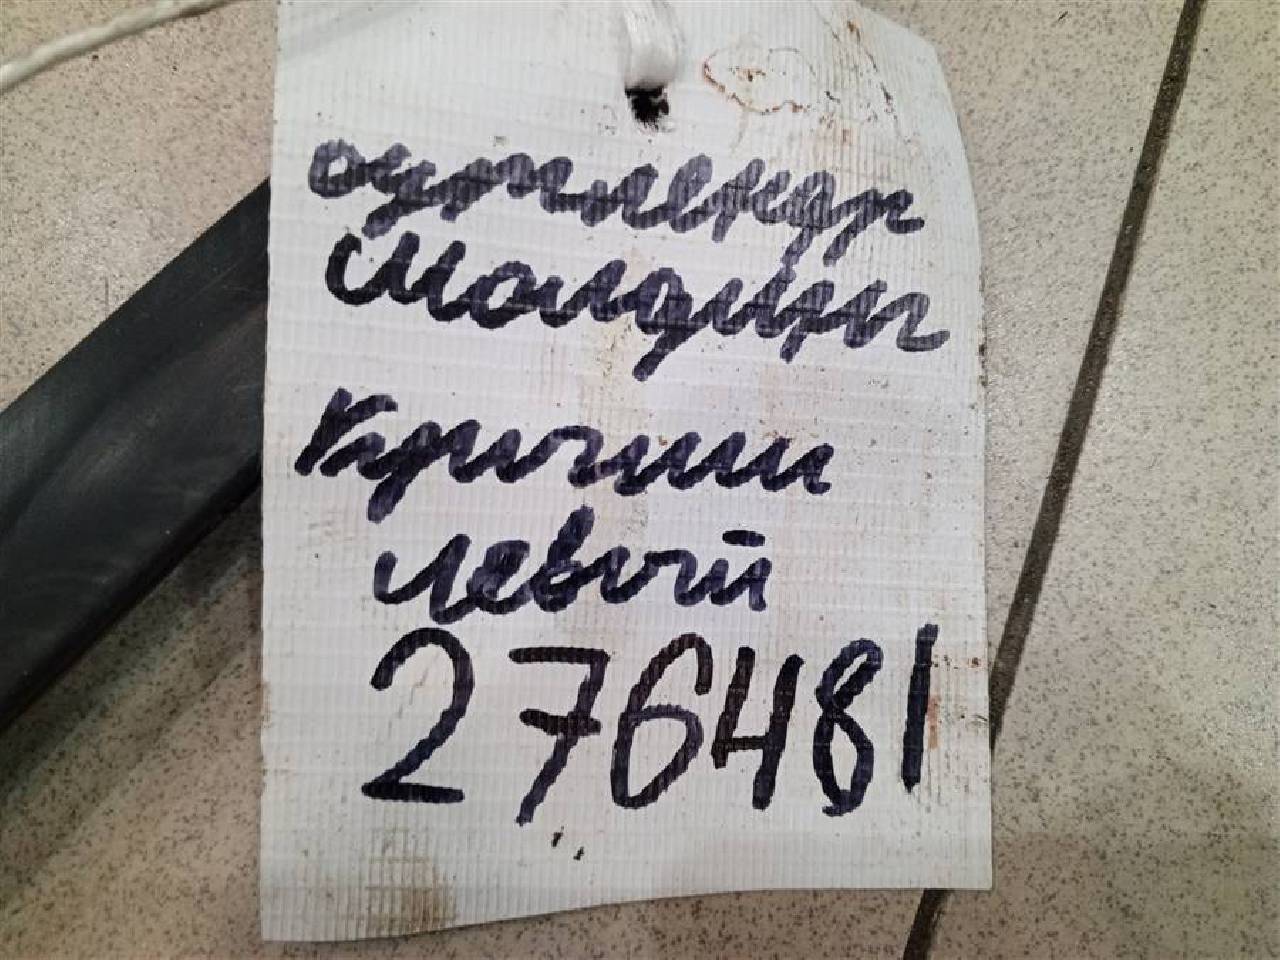 аутлендер
Молдинг
Крыши
левый
276481